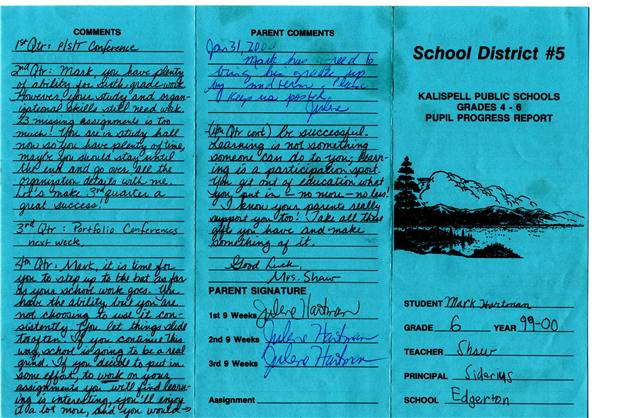 COMMENTS
1st Qtr: P/S/T Conference
2nd Qtr: Mark, you have plenty
of ability for sixth grade work.
However your study and organ-
izational skills still need work.
23 missing assignments is too
much! You are in study hall
now so you have plenty of time,
maybe you should stay until
the end and go over all the
organization details with me.
Let's make 3rd quarter a
great success!
3rd Qtr: Portfolio Conferences
next week.
4th Qtr: Mark, it is time for
you to step up to the bat as far
as your school work goes. You
have the ability, but you are
not choosing to use it con-
sistently. You let things slide
too often. If you continue this
way, school is going to be a real
grind. If you decide to put in
some effort, to work on your
assignments you will find learn-
ing is interesting, you'll enjoy
it a lot more, and you would→
PARENT COMMENTS
Jan 31, 2000
Mark has need to
bring his grades up
by midterm. Please
Keep us posted.
Julene
(4th Qtr cont) be successful.
Learning is not something
someone can do to you; learn-
ing is a participation sport.
You get out of education what
you put in - no more - no less!
I know your parents really
support you too! Take all those
gifts you have and make
something of it.
Good Luck
Mrs. Shaw
PARENT SIGNATURE
1st 9 Weeks Julene Hartman
2nd 9 Weeks Julene Hartman
3rd 9 Weeks Julene Hartman
Assignment
School District #5
KALISPELL PUBLIC SCHOOLS
GRADES 4 - 6
PUPIL PROGRESS REPORT
STUDENT Mark Hartman
GRADE 6 YEAR 99-00
TEACHER Shaw
PRINCIPAL
SCHOOL Edgerton